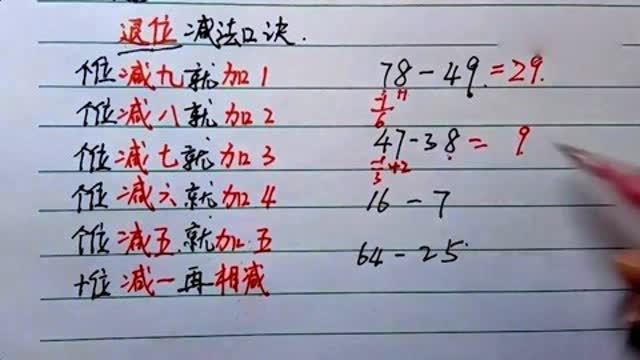 退位减法口诀.
个位减九就加1
个位减八就加2
个位减七就加3
个位减六就加4
个位减五就加五
十位减一再相减
78-49=29.
-1 +1
6
47-38= 9
-1 +2
3
16-7
64-25